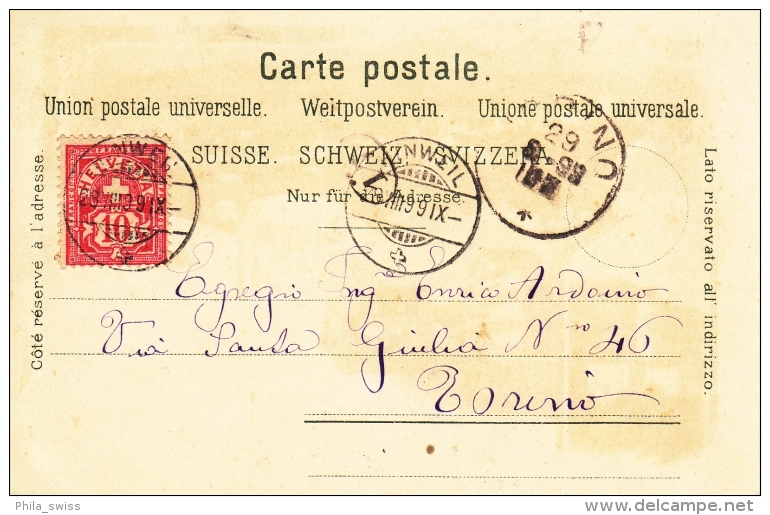 Carte postale.
Union postale universelle. Weltpostverein. Unione postale universale.
SUISSE. SCHWEIZ. SVIZZERA.
Nur für die Adresse.
Côté réservé à l'adresse.
Lato riservato all' indirizzo.
HELVETIA
10
NWEIL
29
IX–
29
Egregio Ing. Enrico Ardoino
Via Santa Giulia No 46
Torino
Phila_swiss
delcampe.net